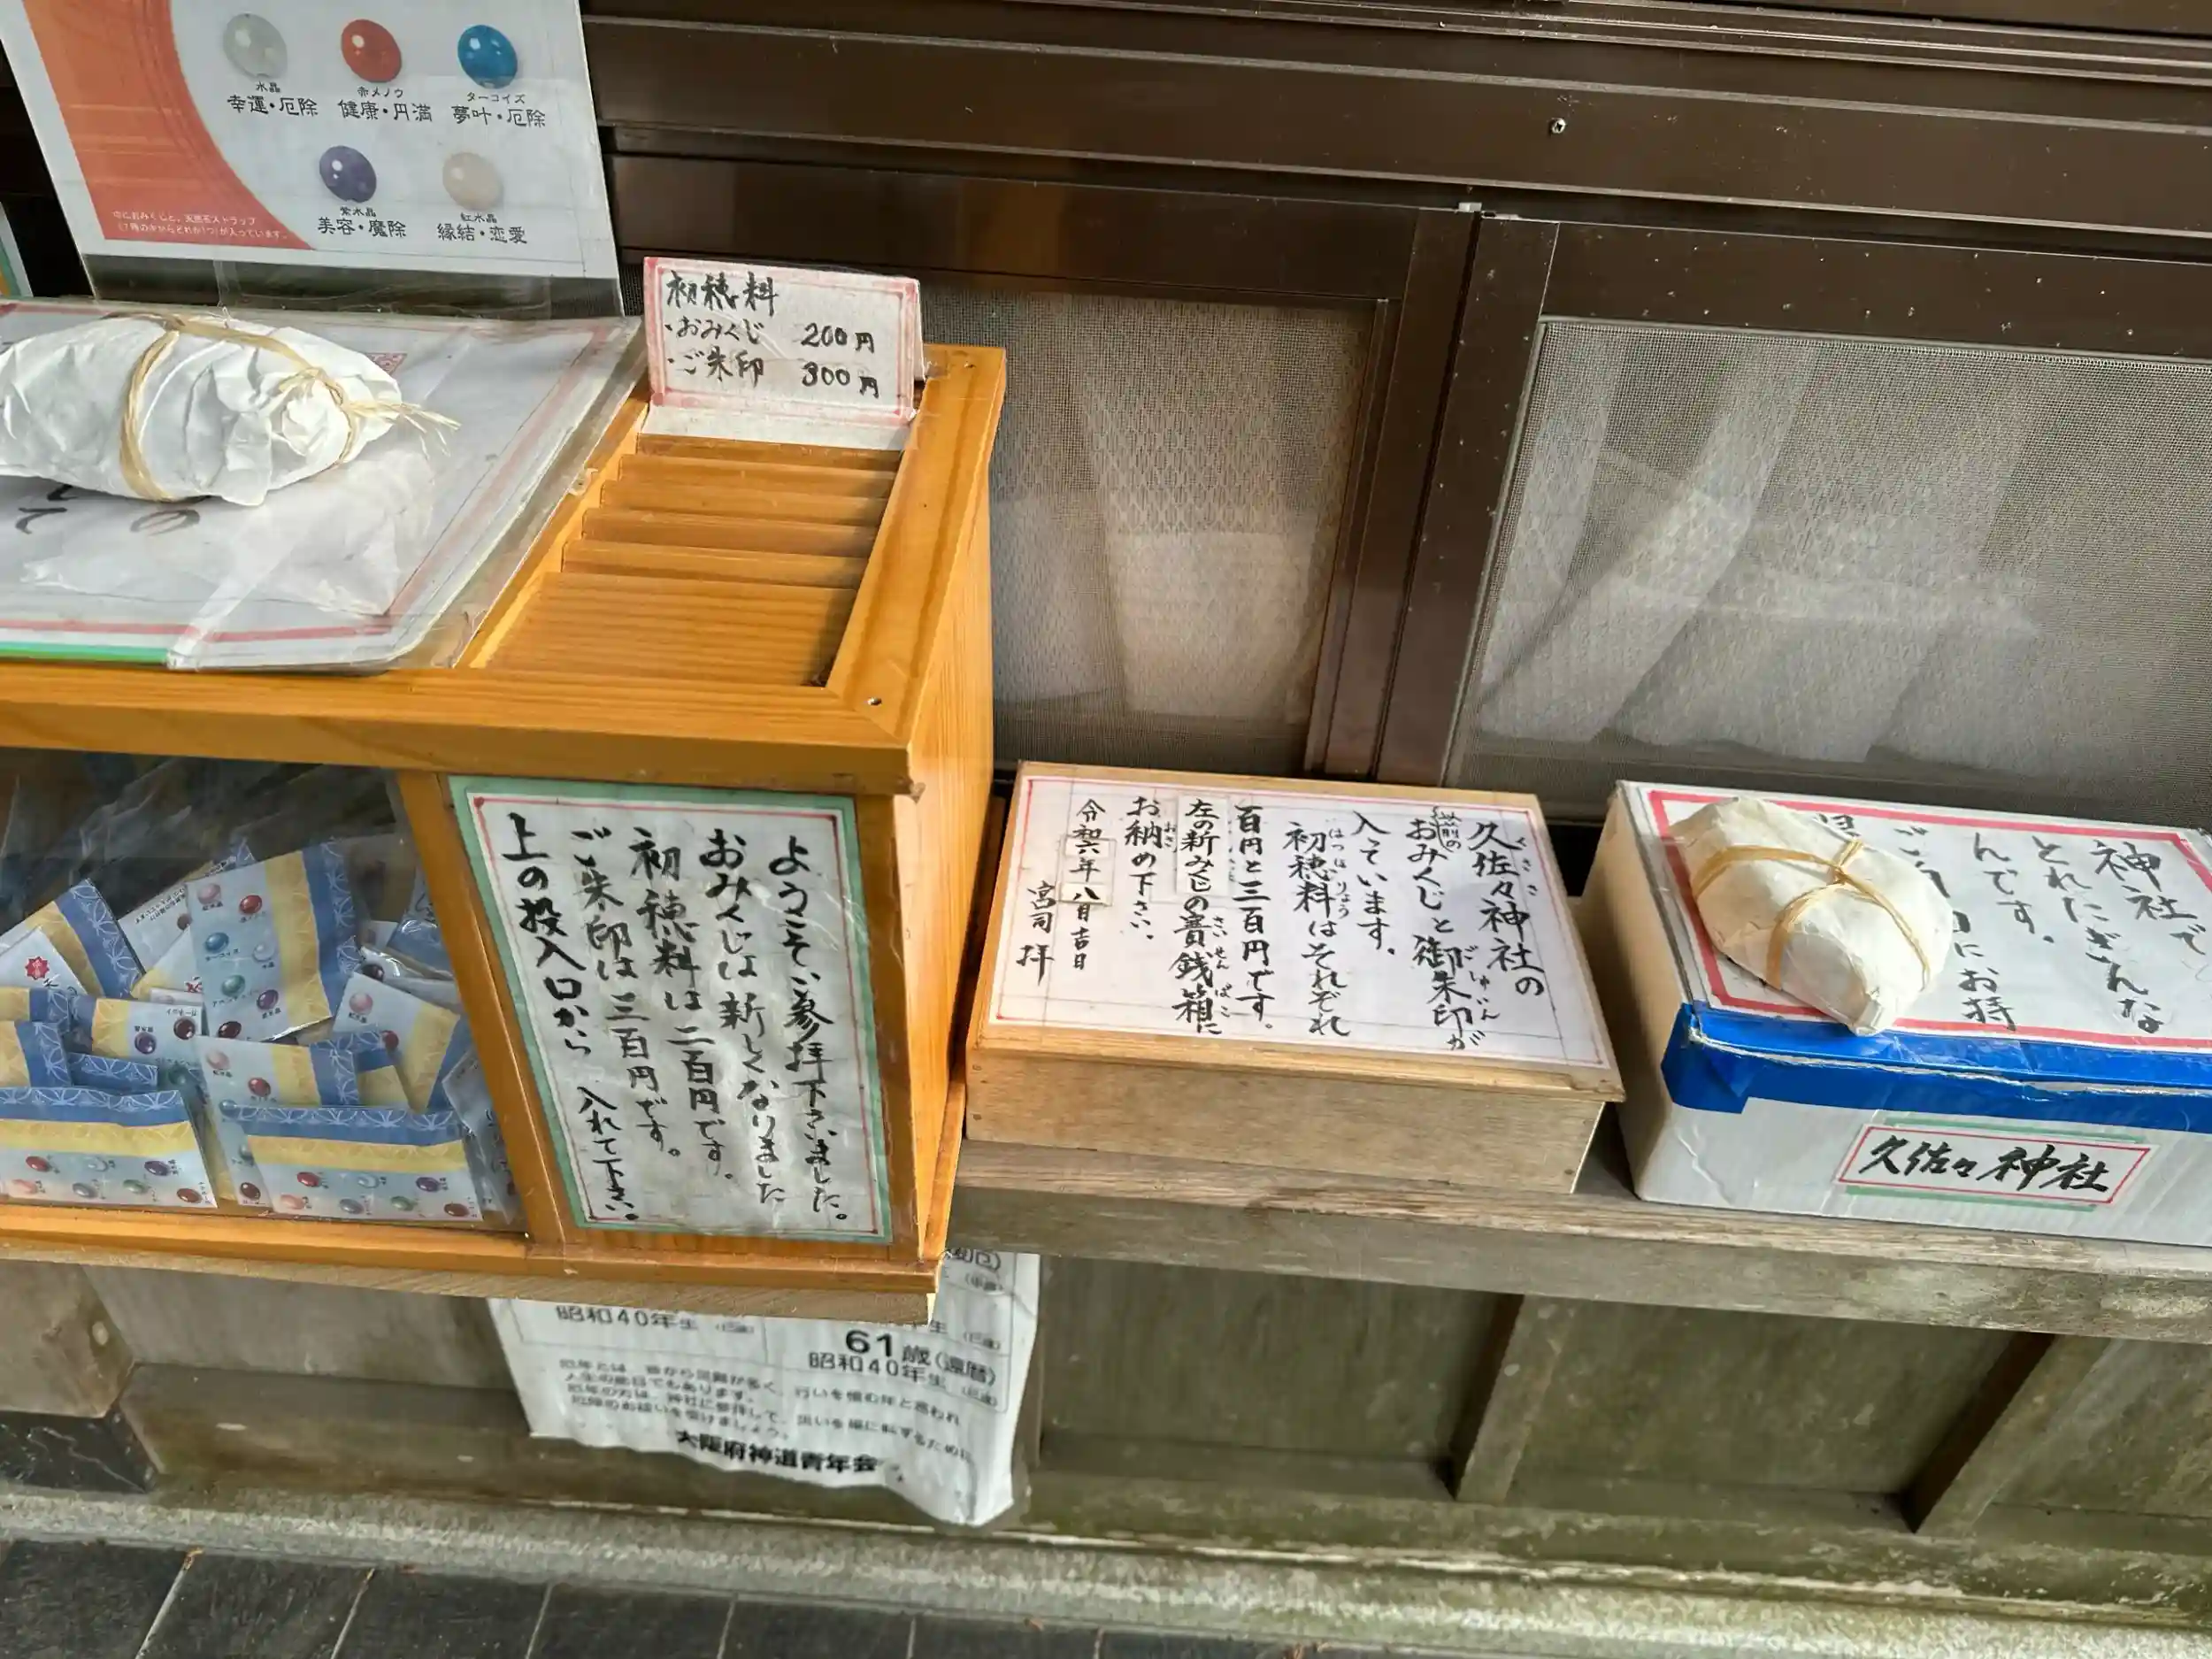 水晶
幸運・厄除
赤メノウ
健康・円満
ターコイズ
夢叶・厄除
紫水晶
美容・魔除
紅水晶
縁結・恋愛
中におみくじと、天然石ストラップ
初穂料
・おみくじ 200円
・ご朱印 300円
ようこそご参拝下さいました。
おみくじは新しくなりました
初穂料は二百円です。
ご朱印は三百円です。
上の投入口から 入れて下さい。
久佐々神社の
以前の
おみくじと御朱印が
入っています。
初穂料はそれぞれ
百円と三百円です。
左の新みくじの賽銭箱に
お納め下さい。
令和六年八月吉日
宮司 拝
神社で
とれたぎんな
んです。
にお持
久佐々神社
昭和40年生
61歳(還暦)
昭和40年生
大阪府神道青年会